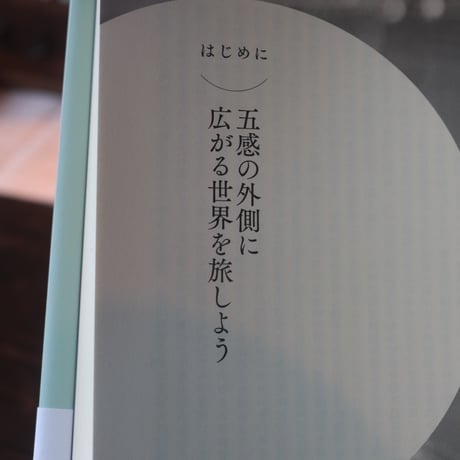 はじめに
五感の外側に
広がる世界を旅しよう